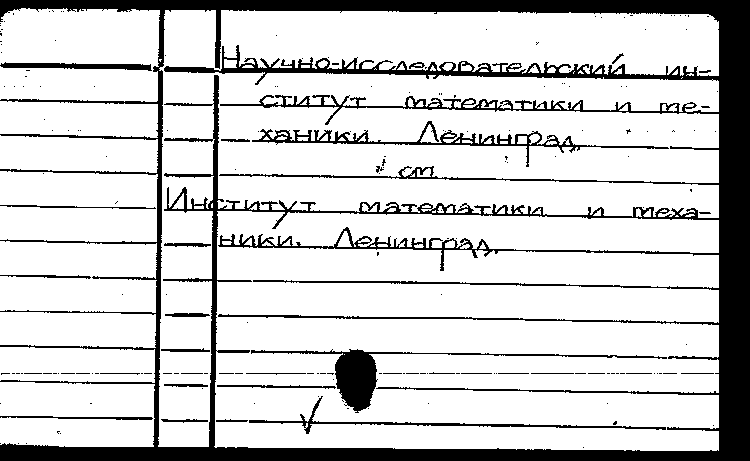 Научно-исследовательский ин-
ститут математики и ме-
ханики. Ленинград.
см.
Институт математики и меха-
ники. Ленинград.